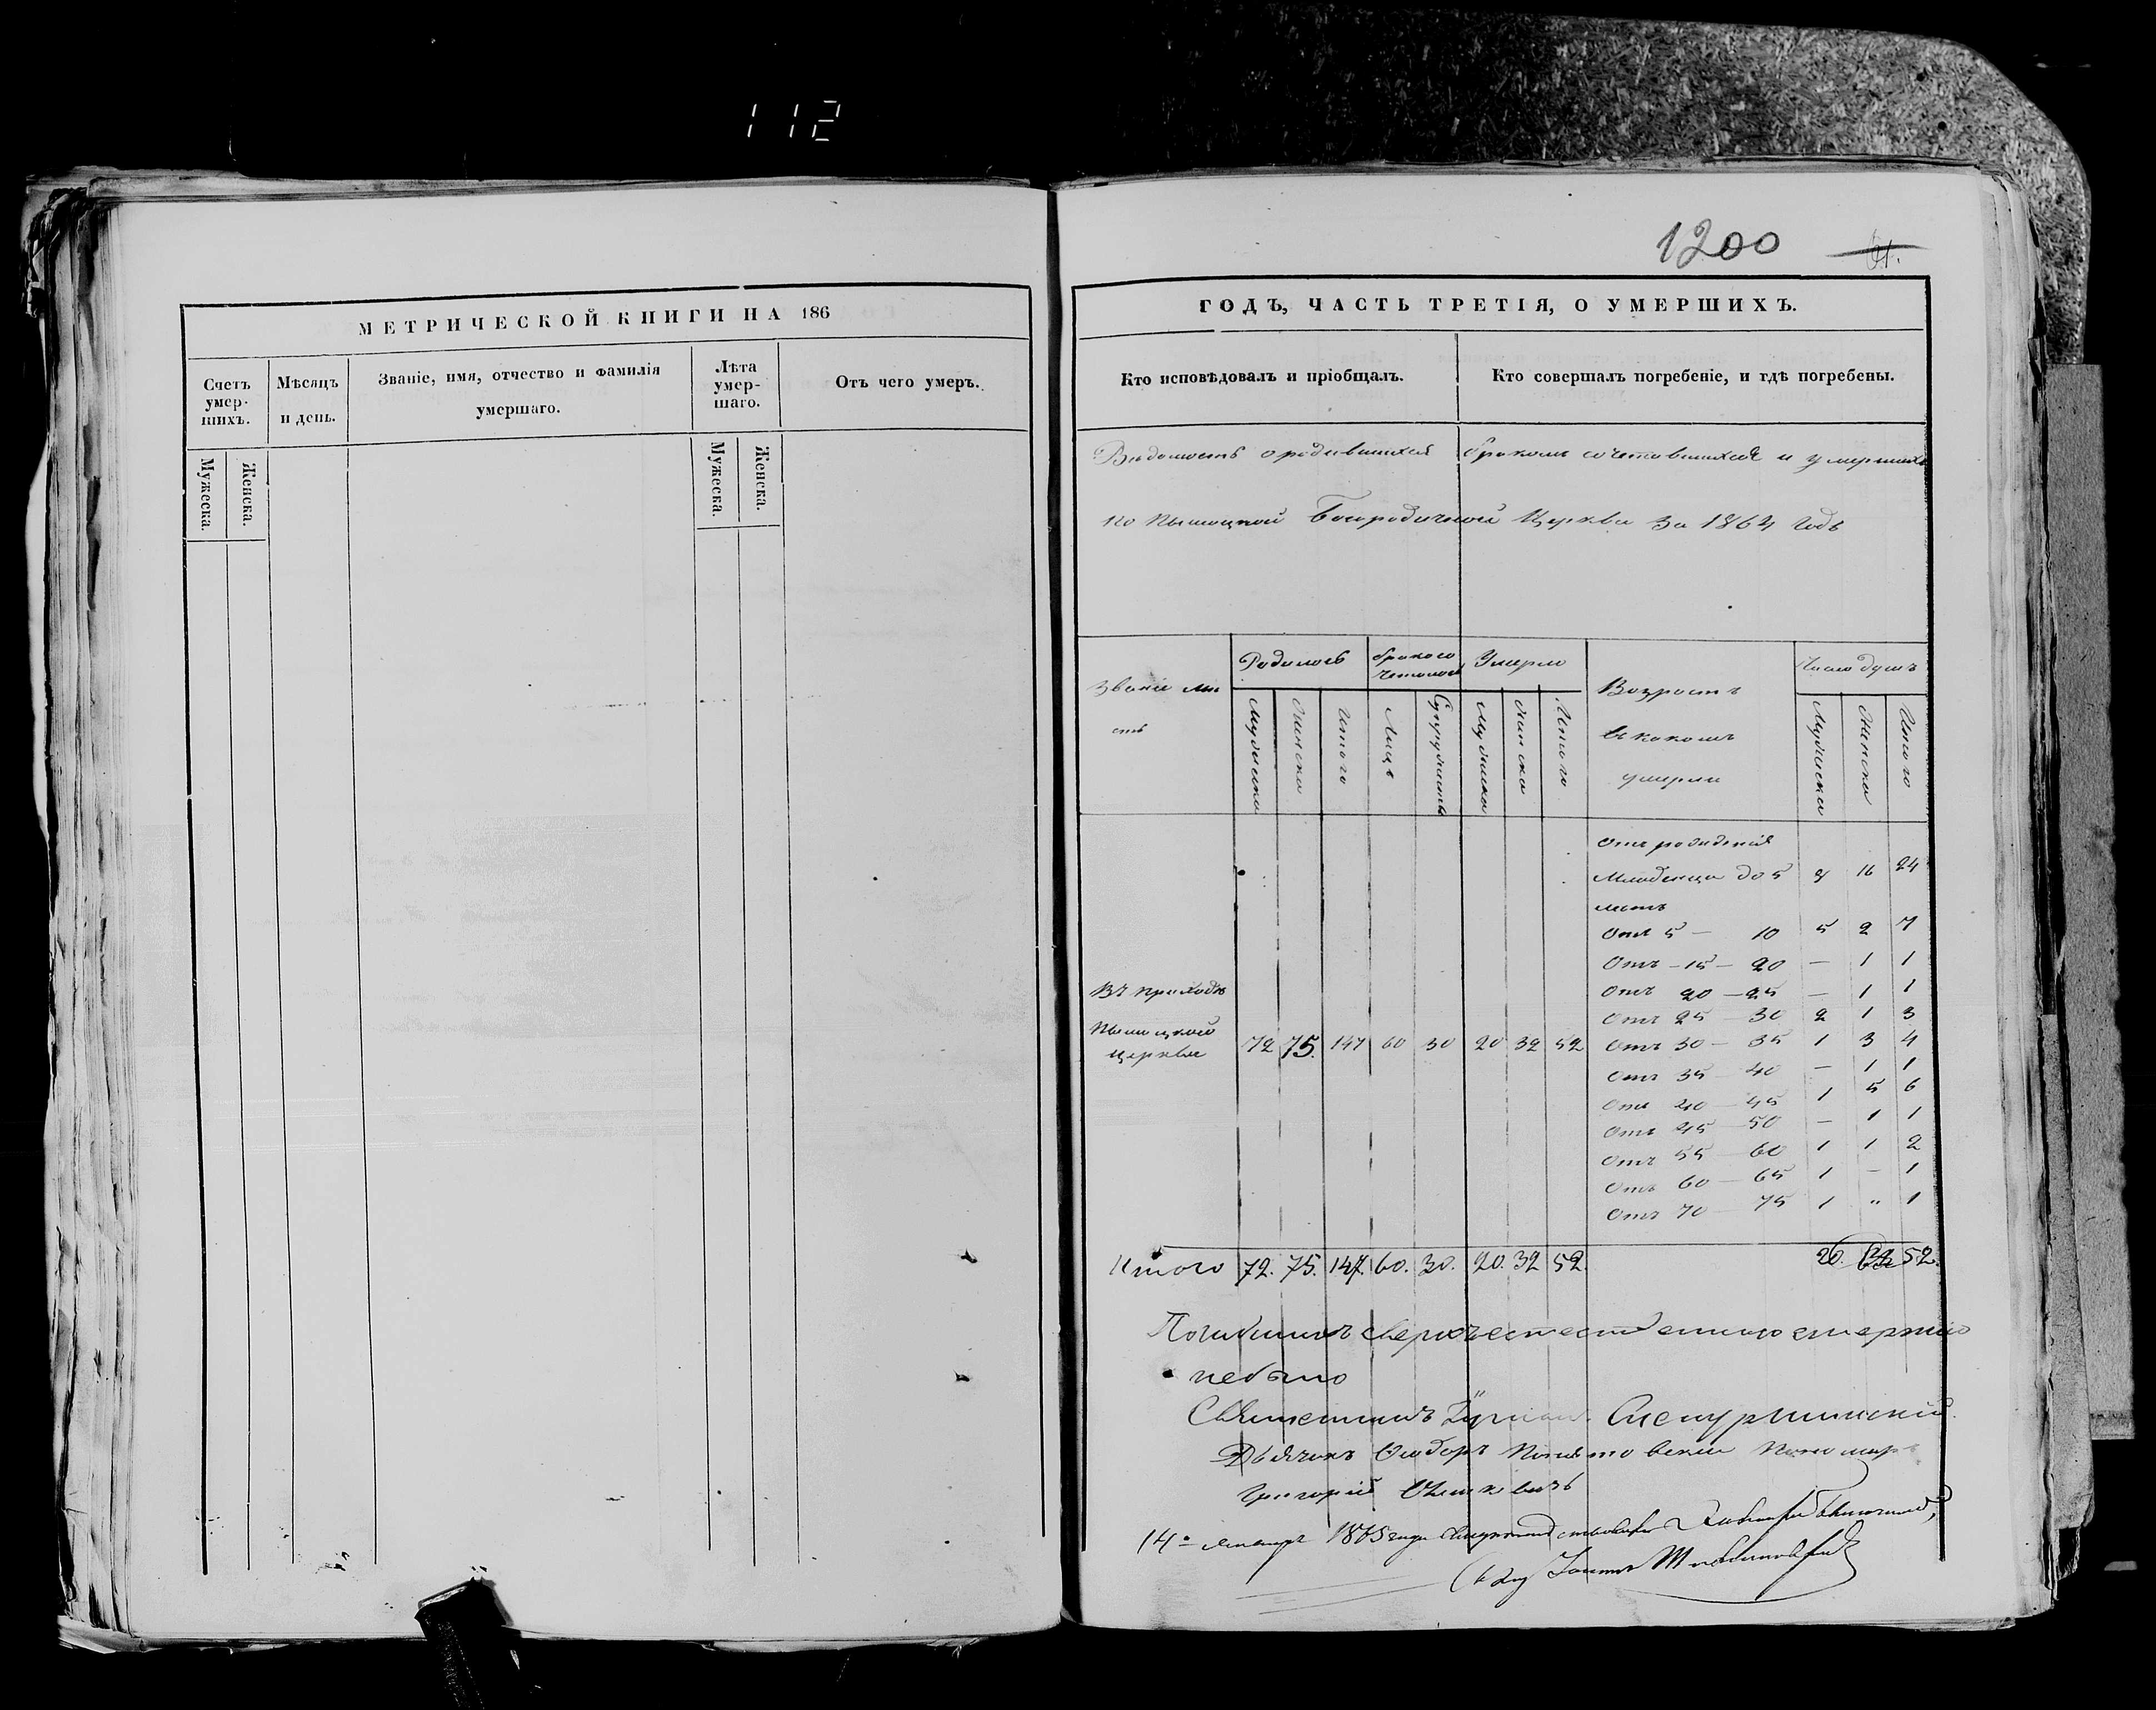 112
МЕТРИЧЕСКОЙ КНИГИ НА 186
Счетъ умер-шихъ.
Мѣсяцъ и день.
Званіе, имя, отчество и фамилія умершаго.
Лѣта умер-шаго.
Отъ чего умеръ.
Мужеска. Женска.
Мужеска. Женска.
1200
61.
ГОДЪ, ЧАСТЬ ТРЕТІЯ, О УМЕРШИХЪ.
Кто исповѣдовалъ и пріобщалъ.
Кто совершалъ погребеніе, и гдѣ погребены.
Ведомость о родившихся бракомъ сочетовшихся и умершихъ
по Богородичной Церкви за 1864 годъ
Званіе мѣ
стъ
Родилось
Умерло
Возрастъ
въ какомъ
умерли
Число душъ
Мужеска Женска Итого
Лицъ Супружествъ
Мужеска Женска Итого
Мужеска Женска Итого
Отъ рожденія
Младенца до 5 8 16 24
летъ
Отъ 5 — 10 5 2 7
Отъ — 15 — 20 — 1 1
Отъ 20 — 25 — 1 1
Отъ 25 — 30 2 1 3
Отъ 30 — 35 1 3 4
Отъ 35 — 40 — 1 1
Отъ 40 — 45 1 5 6
Отъ 45 — 50 — 1 1
Отъ 55 — 60 1 1 2
Отъ 60 — 65 1 — 1
Отъ 70 — 75 1 „ 1
Въ приходѣ
церкви 72 75. 147 60 30 20 32 52
Итого 72. 75. 147. 60. 30. 20. 32 52. 20. 32 52.
Погибшихъ сверхъестественною смертію
небыло
Священникъ
Дьячокъ Ѳеодоръ Понятовскій Пономарь
Григорій
14 1865 года
Іоаннъ